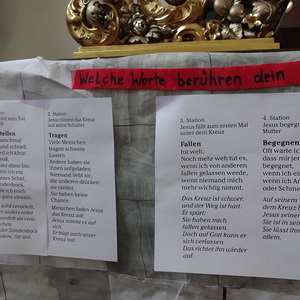 Welche Worte berühren dein
2. Station
Jesus nimmt das Kreuz
auf seine Schulter
Tragen
Viele Menschen
tragen schwere
Lasten.
Andere haben sie
ihnen aufgeladen.
Niemand fragt
sie anderen drücken
sie nieder.
Sie haben keine
Chance.
Menschen laden Jesus
das Kreuz auf.
Jesus nimmt es auf
sich.
Er trägt auch unser
Kreuz mit.
3. Station
Jesus fällt zum ersten Mal
unter dem Kreuz
Fallen
tut weh.
Noch mehr weh tut es,
wenn ich von anderen
fallen gelassen werde,
wenn niemand mich
mehr wichtig nimmt.
Das Kreuz ist schwer,
und der Weg ist hart
Er spürt:
Sie haben mich
fallen gelassen.
Doch auf Gott kann er
sich verlassen.
Das richtet ihn wieder
auf.
4. Station
Jesus begegnet
Mutter
Begegnen
Oft warte ic
dass mir jen
begegnet,
wenn ich ein
wenn ich An
oder Schme
Auf seinem
dem Kreuz
Jesus seiner
Sie ist in sei
Sie lässt ihn
allein.